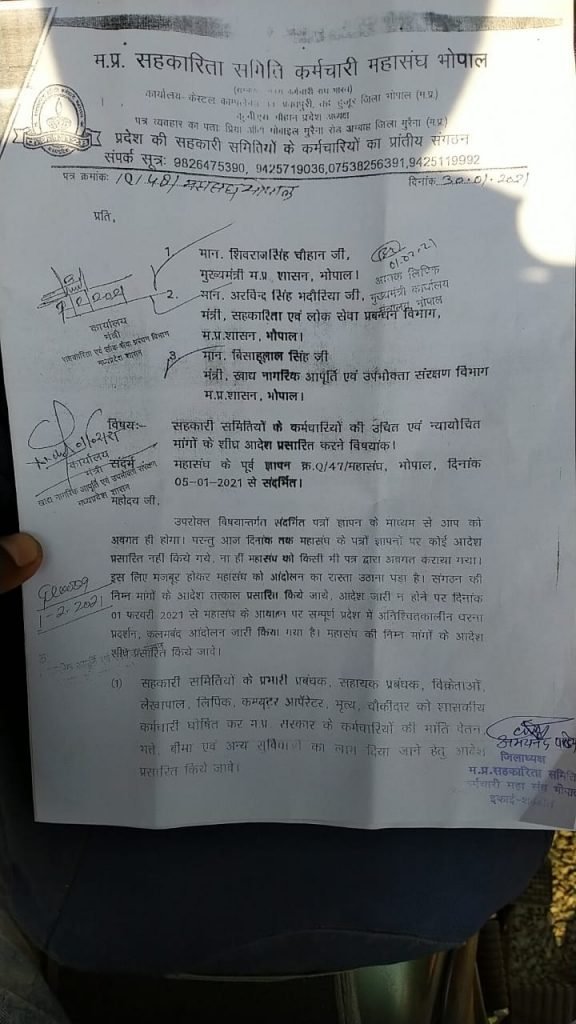 म.प्र. सहकारिता समिति कर्मचारी महासंघ भोपाल
कार्यालय- जिला भोपाल (म.प्र.)
चौहान प्रदेश अध्यक्ष
पत्र व्यवहार का पता मुरैना रोड अम्बाह जिला मुरैना (म.प्र.)
प्रदेश की सहकारी समितियों के कर्मचारियों का प्रांतीय संगठन
संपर्क सूत्र: 9826475390, 9425719036,07538256391,9425119992
पत्र क्रमांक: दिनांक 30-01-2021
प्रति,
1. मान. शिवराजसिंह चौहान जी,
मुख्यमंत्री म.प्र. शासन, भोपाल।
01.02.21
मुख्यमंत्री कार्यालय
भोपाल
2. मान. अरविन्द सिंह भदौरिया जी,
मंत्री, सहकारिता एवं लोक सेवा प्रबन्धन विभाग,
म.प्र.शासन, भोपाल।
कार्यालय
मंत्री
सहकारिता एवं लोक सेवा प्रबंधन विभाग
मध्यप्रदेश शासन
3 मान. बिसाहूलाल सिंह जी
मंत्री, खाद्य नागरिक आपूर्ति एवं उपभोक्ता संरक्षण विभाग
म.प्र.शासन, भोपाल।
विषय:- सहकारी समितियों के कर्मचारियों की उचित एवं न्यायोचित
मांगों के शीघ्र आदेश प्रसारित करने विषयांक।
01/02/21
कार्यालय
मंत्री
खाद्य नागरिक आपूर्ति एवं उपभोक्ता संरक्षण
मध्यप्रदेश शासन
संदर्भ महासंघ के पूर्व ज्ञापन क्र.Q/47/महासंघ, भोपाल, दिनांक
05-01-2021 से संदर्भित।
महोदय जी,
उपरोक्त विषयान्तर्गत संदर्भित पत्रों ज्ञापन के माध्यम से आप को
अवगत ही होगा। परन्तु आज दिनांक तक महासंघ के पत्रों ज्ञापनों पर कोई आदेश
प्रसारित नहीं किये गये, ना ही महासंघ को किसी भी पत्र द्वारा अवगत कराया गया।
इस लिए मजबूर होकर महासंघ को आंदोलन का रास्ता उठाना पडा है। संगठन की
निम्न मांगों के आदेश तत्काल प्रसारित किये जावे, आदेश जारी न होने पर दिनांक
01 फरवरी 2021 से महासंघ के आवाहन पर सम्पूर्ण प्रदेश में अनिश्चितकालीन धरना
प्रदर्शन, कलमबंद आंदोलन जारी किया गया है। महासंघ की निम्न मांगों के आदेश
शीघ्र प्रसारित किये जावे।
1-2-2021
(1) सहकारी समितियों के प्रभारी प्रबंधक, सहायक प्रबंधक, विक्रेताओं,
लेखापाल, लिपिक, कम्प्यूटर आपॅरेटर, भृत्य, चौकीदार को शासकीय
कर्मचारी घोषित कर म.प्र. सरकार के कर्मचारियों की भांति वेतन,
भत्ते, बीमा एवं अन्य सुविधाओं का लाभ दिया जाने हेतु आदेश
प्रसारित किये जावे।
जिलाध्यक्ष
म.प्र.सहकारिता समिति
कर्मचारी महा संघ भोपाल